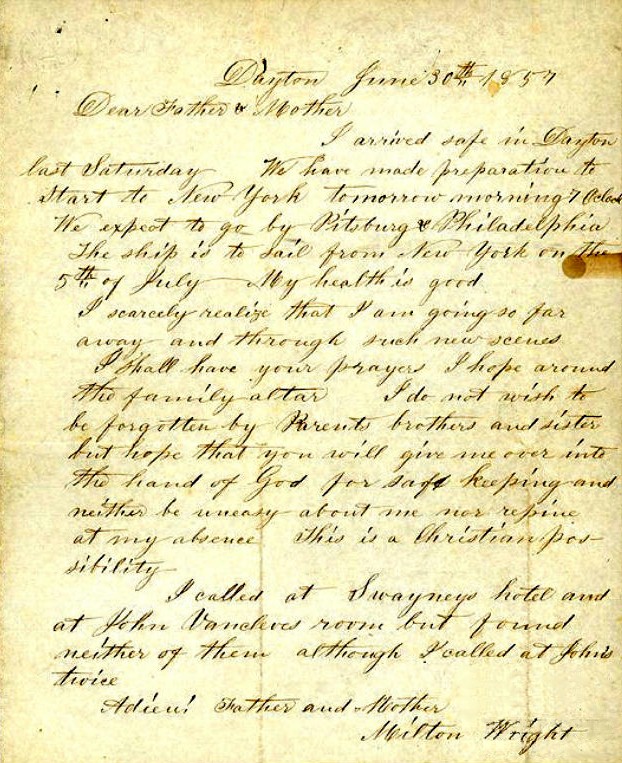 Dayton June 30th 1857
Dear Father & Mother
I arrived safe in Dayton
last Saturday We have made preparation to
Start to New York tomorrow morning 7 Oclock
We expect to go by Pitsburg & Philadelphia
The ship is to sail from New York on the
5th of July My health is good
I scarcely realize that I am going so far
away and through such new scenes
I shall have your prayers I hope around
the family altar I do not wish to
be forgotten by Parents brothers and sister
but hope that you will give me over into
the hand of God for safe keeping and
neither be uneasy about me nor repine
at my absence This is a Christian pos-
sibility
I called at Swayneys hotel and
at John Vancleves room but found
neither of them although I called at John's
twice
Adieu! Father and Mother
Milton Wright